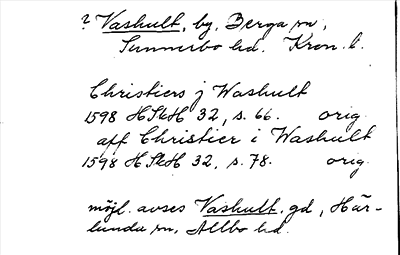 ? Vashult, by, Berga sn,
Sunnerbo hd. Kron. l.
Christiers j Washult
1598 HSkH 32, s. 66. orig.
aff Christier i Washult
1598 HSkH 32, s. 78. orig.
möjl. avses Vashult, gd, Här-
lunda sn, Allbo hd.